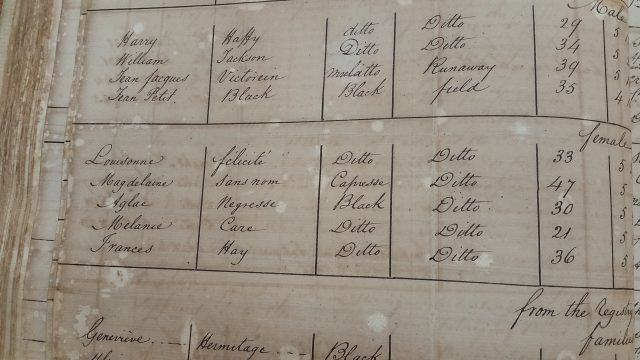 Male
Harry Haffy ditto Ditto 29 5
William Jackson Ditto Ditto 34 5
Jean Jacques Victoirin Mulatto Runaway 39 5
Jean Petit. Black Black field 35 4
female
Louisonne félicité Ditto Ditto 33 5
Magdelaine Sans nom Capresse Ditto 47 5
Aglae Negresse Black Ditto 30 5
Mélanie Care Ditto Ditto 21 5
Frances Hay Ditto Ditto 36 5
from the Registry
famili
Geneviève Hermitage Black